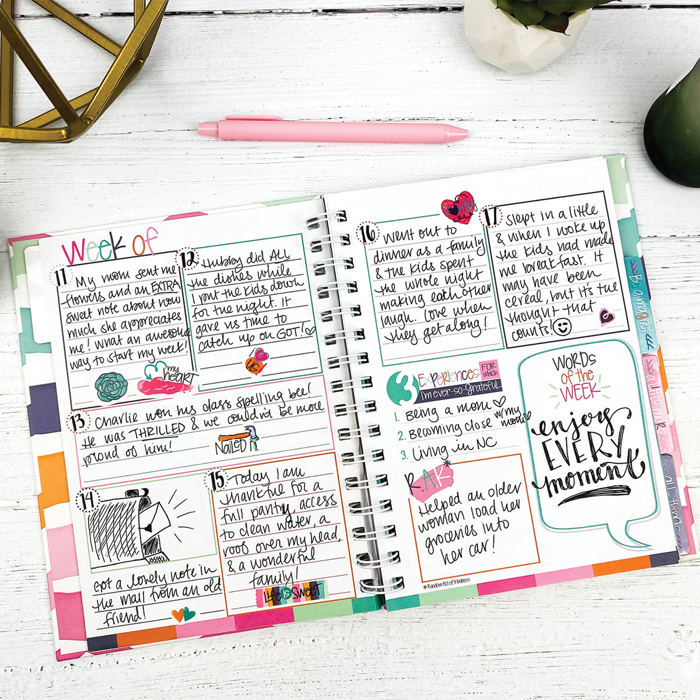 Week of
11
My mom sent me
flowers and an EXTRA
sweet note about how
much she appreciates
me! What an awesome
way to start my week!
my
HEART
12
Hubby did ALL
the dishes while
I put the kids down
for the night. It
gave us time to
catch up on GOT!
13
Charlie won his class spelling bee!
He was THRILLED & we could'nt be more
proud of him!
NAILED IT
14
Got a lovely note in
the mail from an old
friend!
15
Today I am
thankful for a
full pantry, access
to clean water, a
roof over my head,
& a wonderful
family!
Life is SWEET
16
Went out to
dinner as a family
& the kids spent
the whole night
making each other
laugh. Love when
they get along!
17
Slept in a little
& when I woke up
the kids had made
me breakfast. It
may have been
cereal, but it's the
thought that
counts!
3 Experiences FOR which
I'm ever-so-grateful
1. Being a mom
2. Becoming close w/my mom
3. Living in NC
R.A.K
Helped an older
woman load her
groceries into
her car!
#Random Act of Kindness
WORDS
OF the
WEEK
enjoy
EVERY
moment